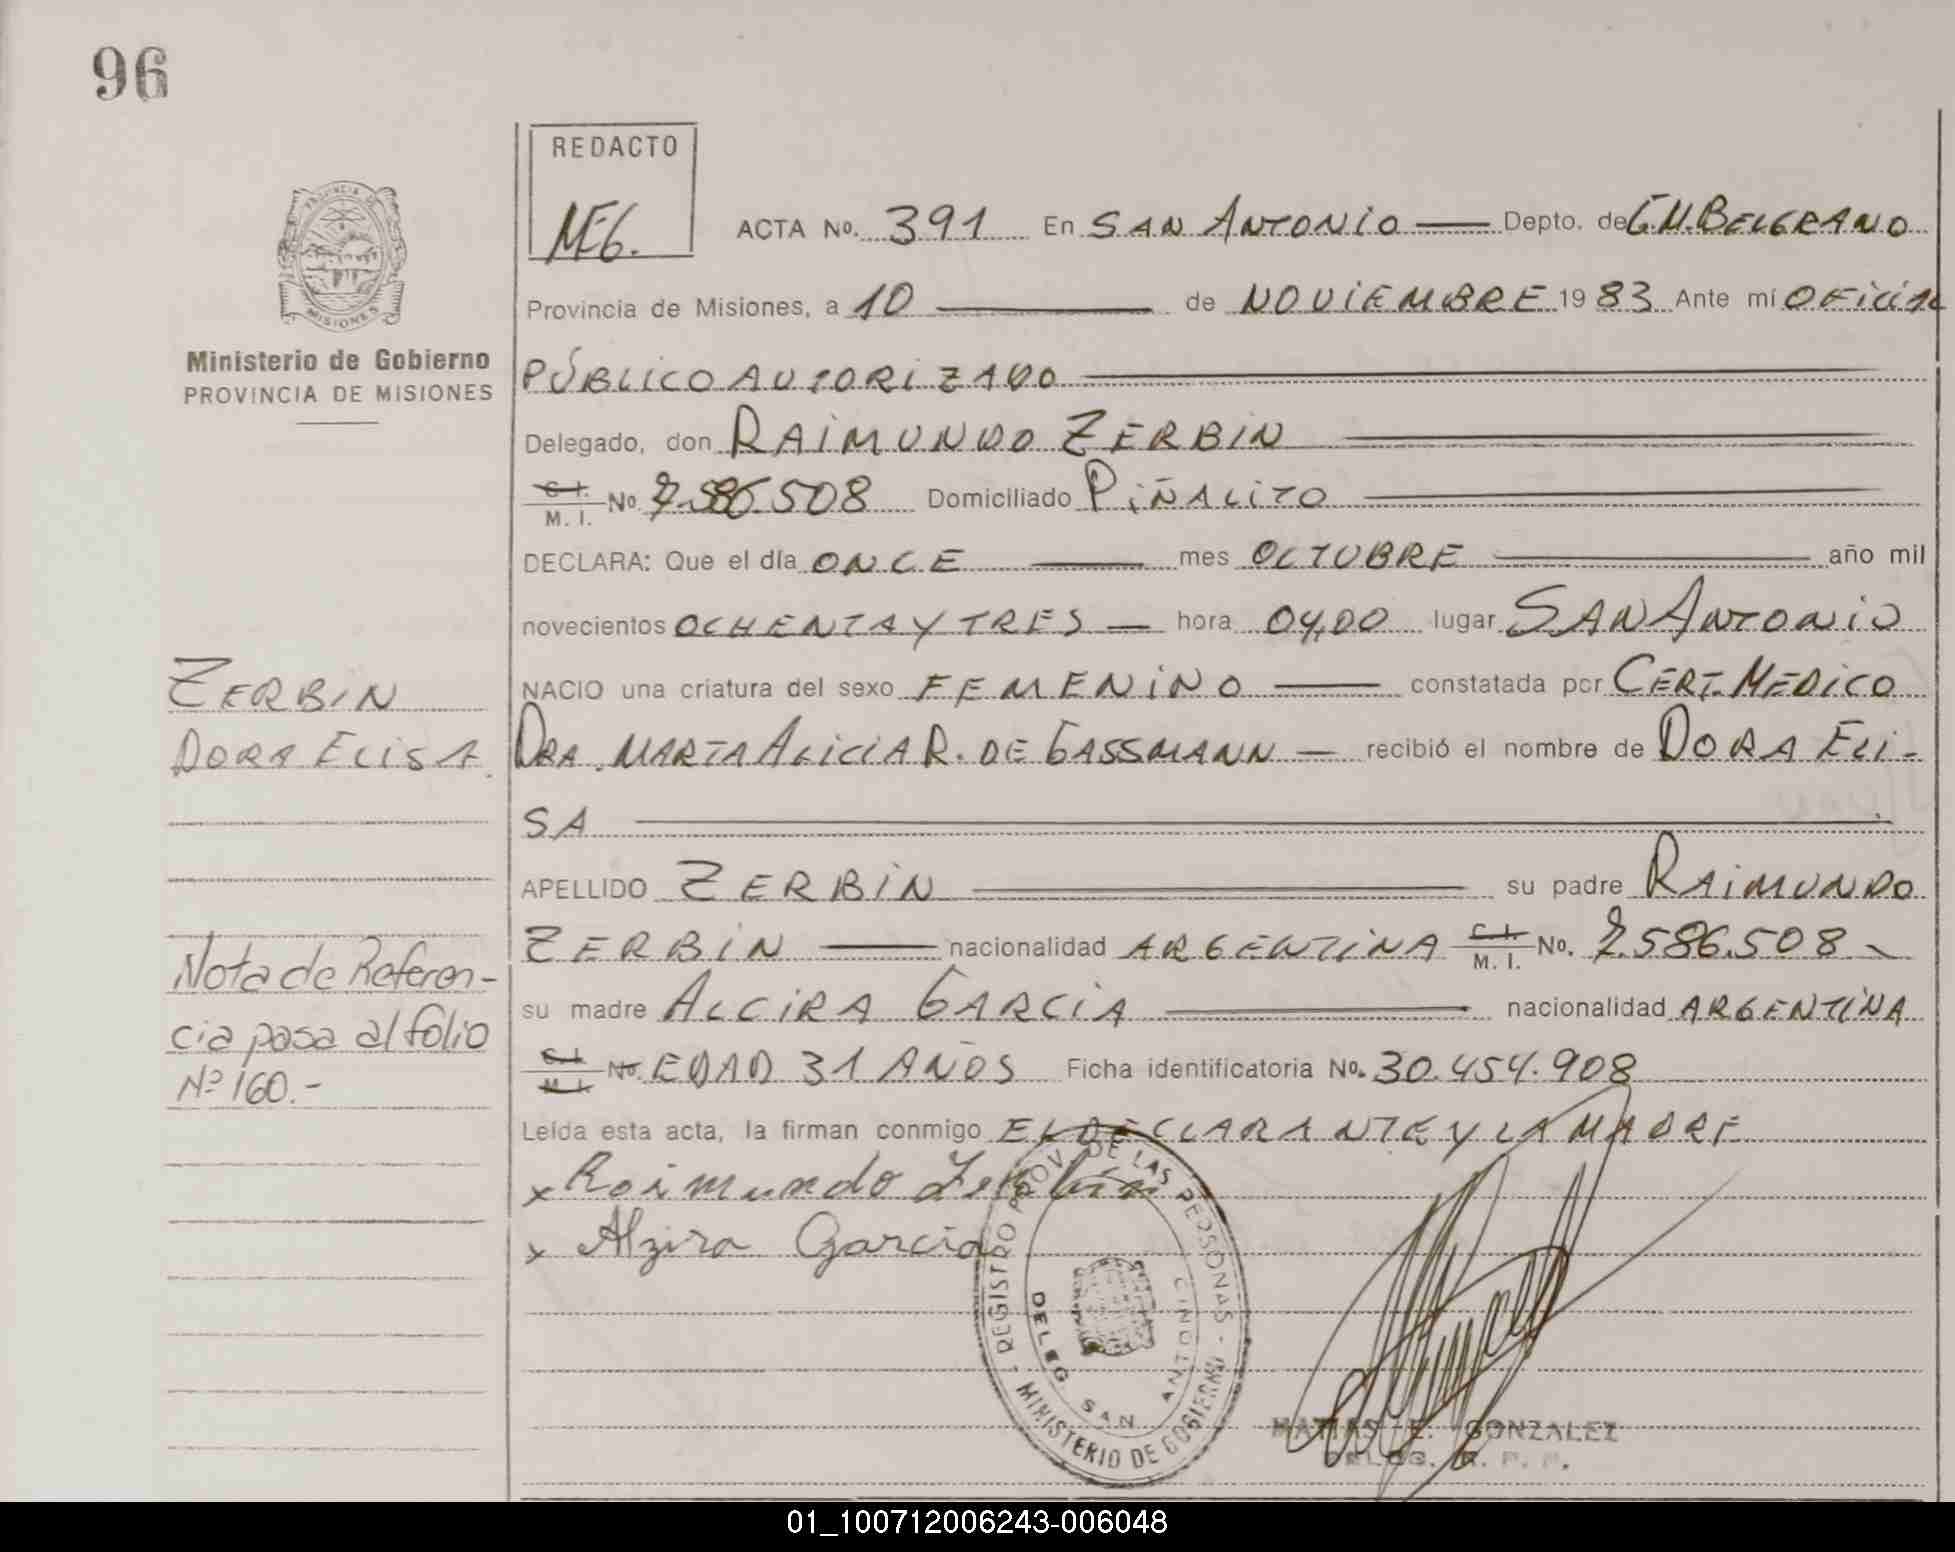 96
REDACTO
MEG.
ACTA No. 391 En SAN ANTONIO Depto. de G.M. BELGRANO
PROVINCIA DE
MISIONES
Provincia de Misiones, a 10 de NOVIEMBRE 1983 Ante mí OFICIAL
Ministerio de Gobierno
PROVINCIA DE MISIONES
PÚBLICO AUTORIZADO
Delegado, don RAIMUNDO ZERBIN
C. I. M. I. No. 7.586.508 Domiciliado PIÑALITO
DECLARA: Que el día ONCE mes OCTUBRE año mil
novecientos OCHENTA Y TRES hora 04,00 lugar SAN ANTONIO
ZERBIN
NACIO una criatura del sexo FEMENINO constatada por CERT. MEDICO
DORA ELISA.
DRA. MARTA ALICIA R. DE GASSMANN recibió el nombre de DORA ELI-
SA
APELLIDO ZERBIN su padre RAIMUNDO
ZERBIN nacionalidad ARGENTINA C. I. M. I. No. 7.586.508
Nota de Referen-
cia pasa al folio
Nº 160.-
su madre ALCIRA GARCIA nacionalidad ARGENTINA
C. I. M. I. No. EDAD 31 AÑOS Ficha identificatoria No. 30.454.908
Leída esta acta, la firman conmigo EL DECLARANTE Y LA MADRE
x Raimundo Zerbin
x Alzira Garcia
REGISTRO PROV. DE LAS PERSONAS - MINISTERIO DE GOBIERNO
DELEG. SAN ANTONIO
MATIAS E. GONZALEZ
DELEG. R. P. P.
01_100712006243-006048